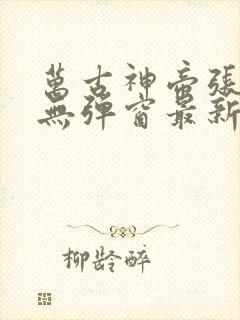 萬古神帝張
無彈窗最新
柳齡醉